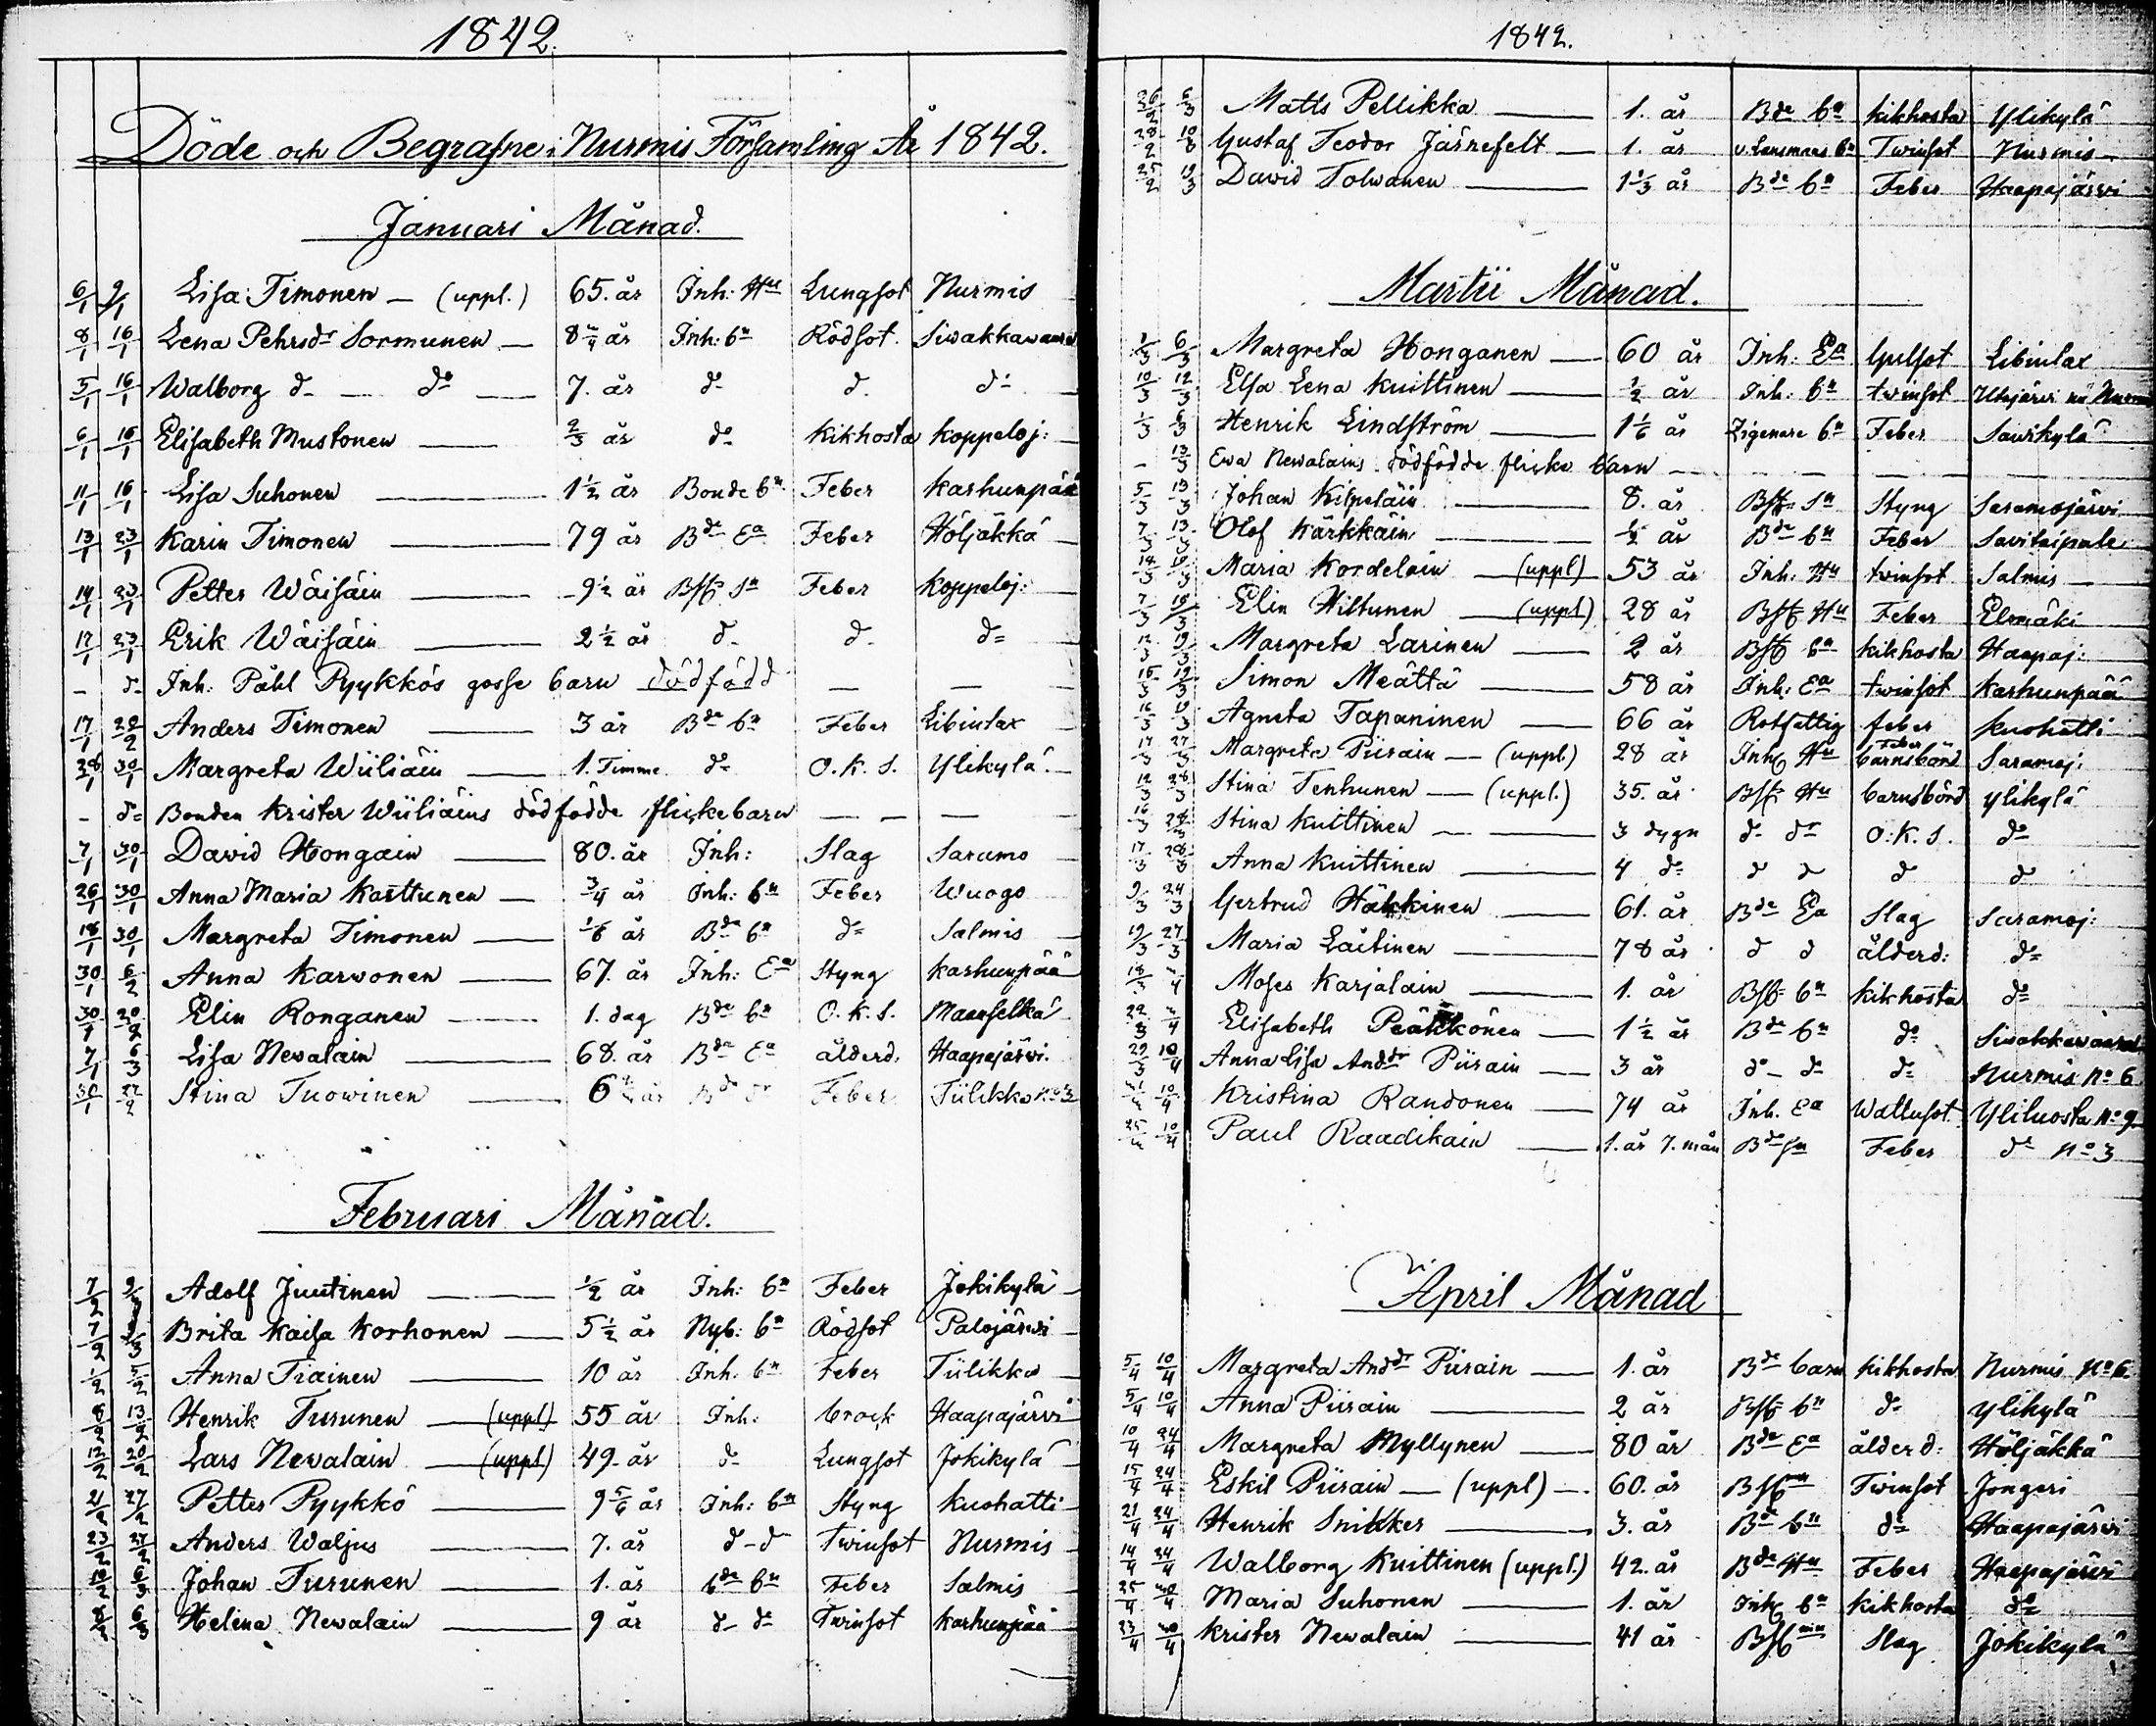 1842.
Döde och Begrafne i Nurmis Församling År 1842.
Januari Månad.
6/1 9/1 Lisa Timonen — (uppl.) 65. år Inh: Hu Lungsot Nurmis
8/1 16/1 Lena Pehrsdr Sormunen — år Inh: bn Rödsot. Siwakkawaara
5/1 16/1 Walborg d- — do — 7. år d- d. d-
6/1 16/1 Elisabeth Mustonen — 2/3 år do Kikhosta Koppeloj:
11/1 16/1 Lisa Suhonen — 1 1/2 år Bonde bn Feber Karhunpää
13/1 23/1 Karin Timonen — 79 år Bde Ea Feber Höljäkkä
14/1 23/1 Petter Wäisäin — 9 1/2 år Bst: sn Feber Koppeloj:
17/1 23/1 Erik Wäisäin — 2 1/2 år d- d- d=
— d- Inh: Påhl Pyykkös gosse barn dödfödd — — —
17/1 20/2 Anders Timonen — 3 år Bde bn Feber Libintax
28/1 30/1 Margreta Wiiliäin — 1. Timme d- O.K.S. Ylikylä.
— d= Bonden Krister Wiiliäins dödfödde flickebarn — — —
7/1 30/1 David Hongain — 80. år Inh: Slag Saramo
26/1 30/1 Anna Maria Karttunen — 3/4 år Inh: bn Feber Wuogo
18/1 30/1 Margreta Timonen — 1/6 år Bde bn d= Salmis
30/1 6/2 Anna Karwonen — 67. år Inh: Ea Styng Karhunpää
30/1 20/2 Elin Ronganen — 1. dag Bde bn O.K.S. Maanselkä
7/1 6/3 Lisa Newalain — 68. år Bde Ea ålderd. Haapajärwi.
30/1 27/2 Stina Tuowinen — 6 år Feber Tiilikka No 3
Februari Månad.
7/2 Adolf Juutinen — 1/2 år Inh: bn Feber Jokikylä
7/2 Brita Kaisa Korhonen — 5 1/2 år Nyb: bn Rödsot Palojärwi
1/2 5/2 Anna Tiainen — 10 år Inh. bn Feber Tiilikka
8/2 13/2 Henrik Turunen — (uppl) 55 år Inh: brock Haapajärwi
12/2 20/2 Lars Newalain — (uppl) 49. år d- Lungsot Jokikylä
21/2 27/2 Petter Pyykkö — 9 5/6 år Inh: bn Styng Kuohatti
23/2 27/2 Anders Waljus — 7. år d-d Twinsot Nurmis
10/2 6/3 Johan Turunen — 1. år bde bn Feber Salmis
6/3 Helena Newalain — 9 år d- d- Twinsot Karhunpää
1842.
26/2 6/3 Matts Pellikka — 1. år Bde bn Kikhosta Ylikylä
28/2 10/3 Gustaf Teodor Järnefelt — 1. år v. Länsmans bn Twinsot Nurmis
25/2 David Tolwanen — 1 1/3 år Bde bn Feber Haapajärwi
Martii Månad.
1/3 6/3 Margreta Honganen — 60 år Inh: Ea Gulsot Libintax
10/3 12/3 Elsa Lena Kuittinen — 1/2 år Inh: bn twinsot
1/3 6/3 Henrik Lindström — 1 1/6 år Zigenare bn Feber
— 13/3 Ewa Newalains dödfödde flicke barn — — — —
5/3 13/3 Johan Kilpeläin — 8. år Bst: sn Styng Saramojärwi
7/3 13/3 Olof Kärkkäin — 1/2 år Bde bn Feber Savitaipale
14/3 Maria Kordelain — (uppl) 53 år Inh: Hu twinsot Salmis
7/3 Elin Hiltunen — (uppl) 28 år Bst: Hu Feber Elomäki
12/3 19/3 Margreta Larinen — 2 år Bst bn Kikhosta Haapaj:
15/3 19/3 Simon Määttä — 58 år Inh: Ea twinsot Karhunpää
16/3 19/3 Agneta Tapaninen — 66 år Rotfattig feber Kuohatti
17/3 27/3 Margreta Piirain — (uppl.) 28 år Inh Hu Feber barnsbörd Saramoj:
12/3 28/3 Stina Tenhunen — (uppl.) 35. år Bst: Hu barnsbörd Ylikylä
16/3 28/3 Stina Kuittinen — 3 dygn d- d- O.K.S. do
17/3 28/3 Anna Kuittinen — 4 d- d d d d
9/3 24/3 Gertrud Häkkinen — 61. år Bde Ea Slag Saramoj:
19/3 27/3 Maria Laitinen — 78 år d d ålderd: d=
18/3 Moses Karjalain — 1. år Bst: bn Kikhosta do
22/3 Elisabeth Pääkkönen — 1 1/2 år Bde bn do Siwakkawaara
29/3 10/4 Anna Lisa Anddr Piirain — 3 år d- d- d= Nurmis No 6
10/4 Kristina Randonen — 74 år Inh. Ea Wattusot. Yliluosta No 9
10/4 Paul Raadikain — 1. år 7. mån Bde sn Feber d- No 3
April Månad
5/4 10/4 Margreta Anddr Piirain — 1. år Bde barn Kikhosta Nurmis No 6
5/4 10/4 Anna Piirain — 2 år Bst: bn d- Ylikylä
10/4 24/4 Margreta Myllynen — 80 år Bde Ea ålderd: Höljäkkä
15/4 24/4 Eskil Piirain — (uppl) — 60. år Bst Twinsot Jongeri
21/4 24/4 Henrik Snikker — 3. år Bde bn d= Haapajärwi
14/4 24/4 Walborg Kuittinen (uppl.) 42. år Bde Hu Feber Haapajärwi
25/4 Maria Suhonen — 1. år Inh bn Kikhosta do
23/4 Krister Newalain — 41 år Bst Slag Jokikylä